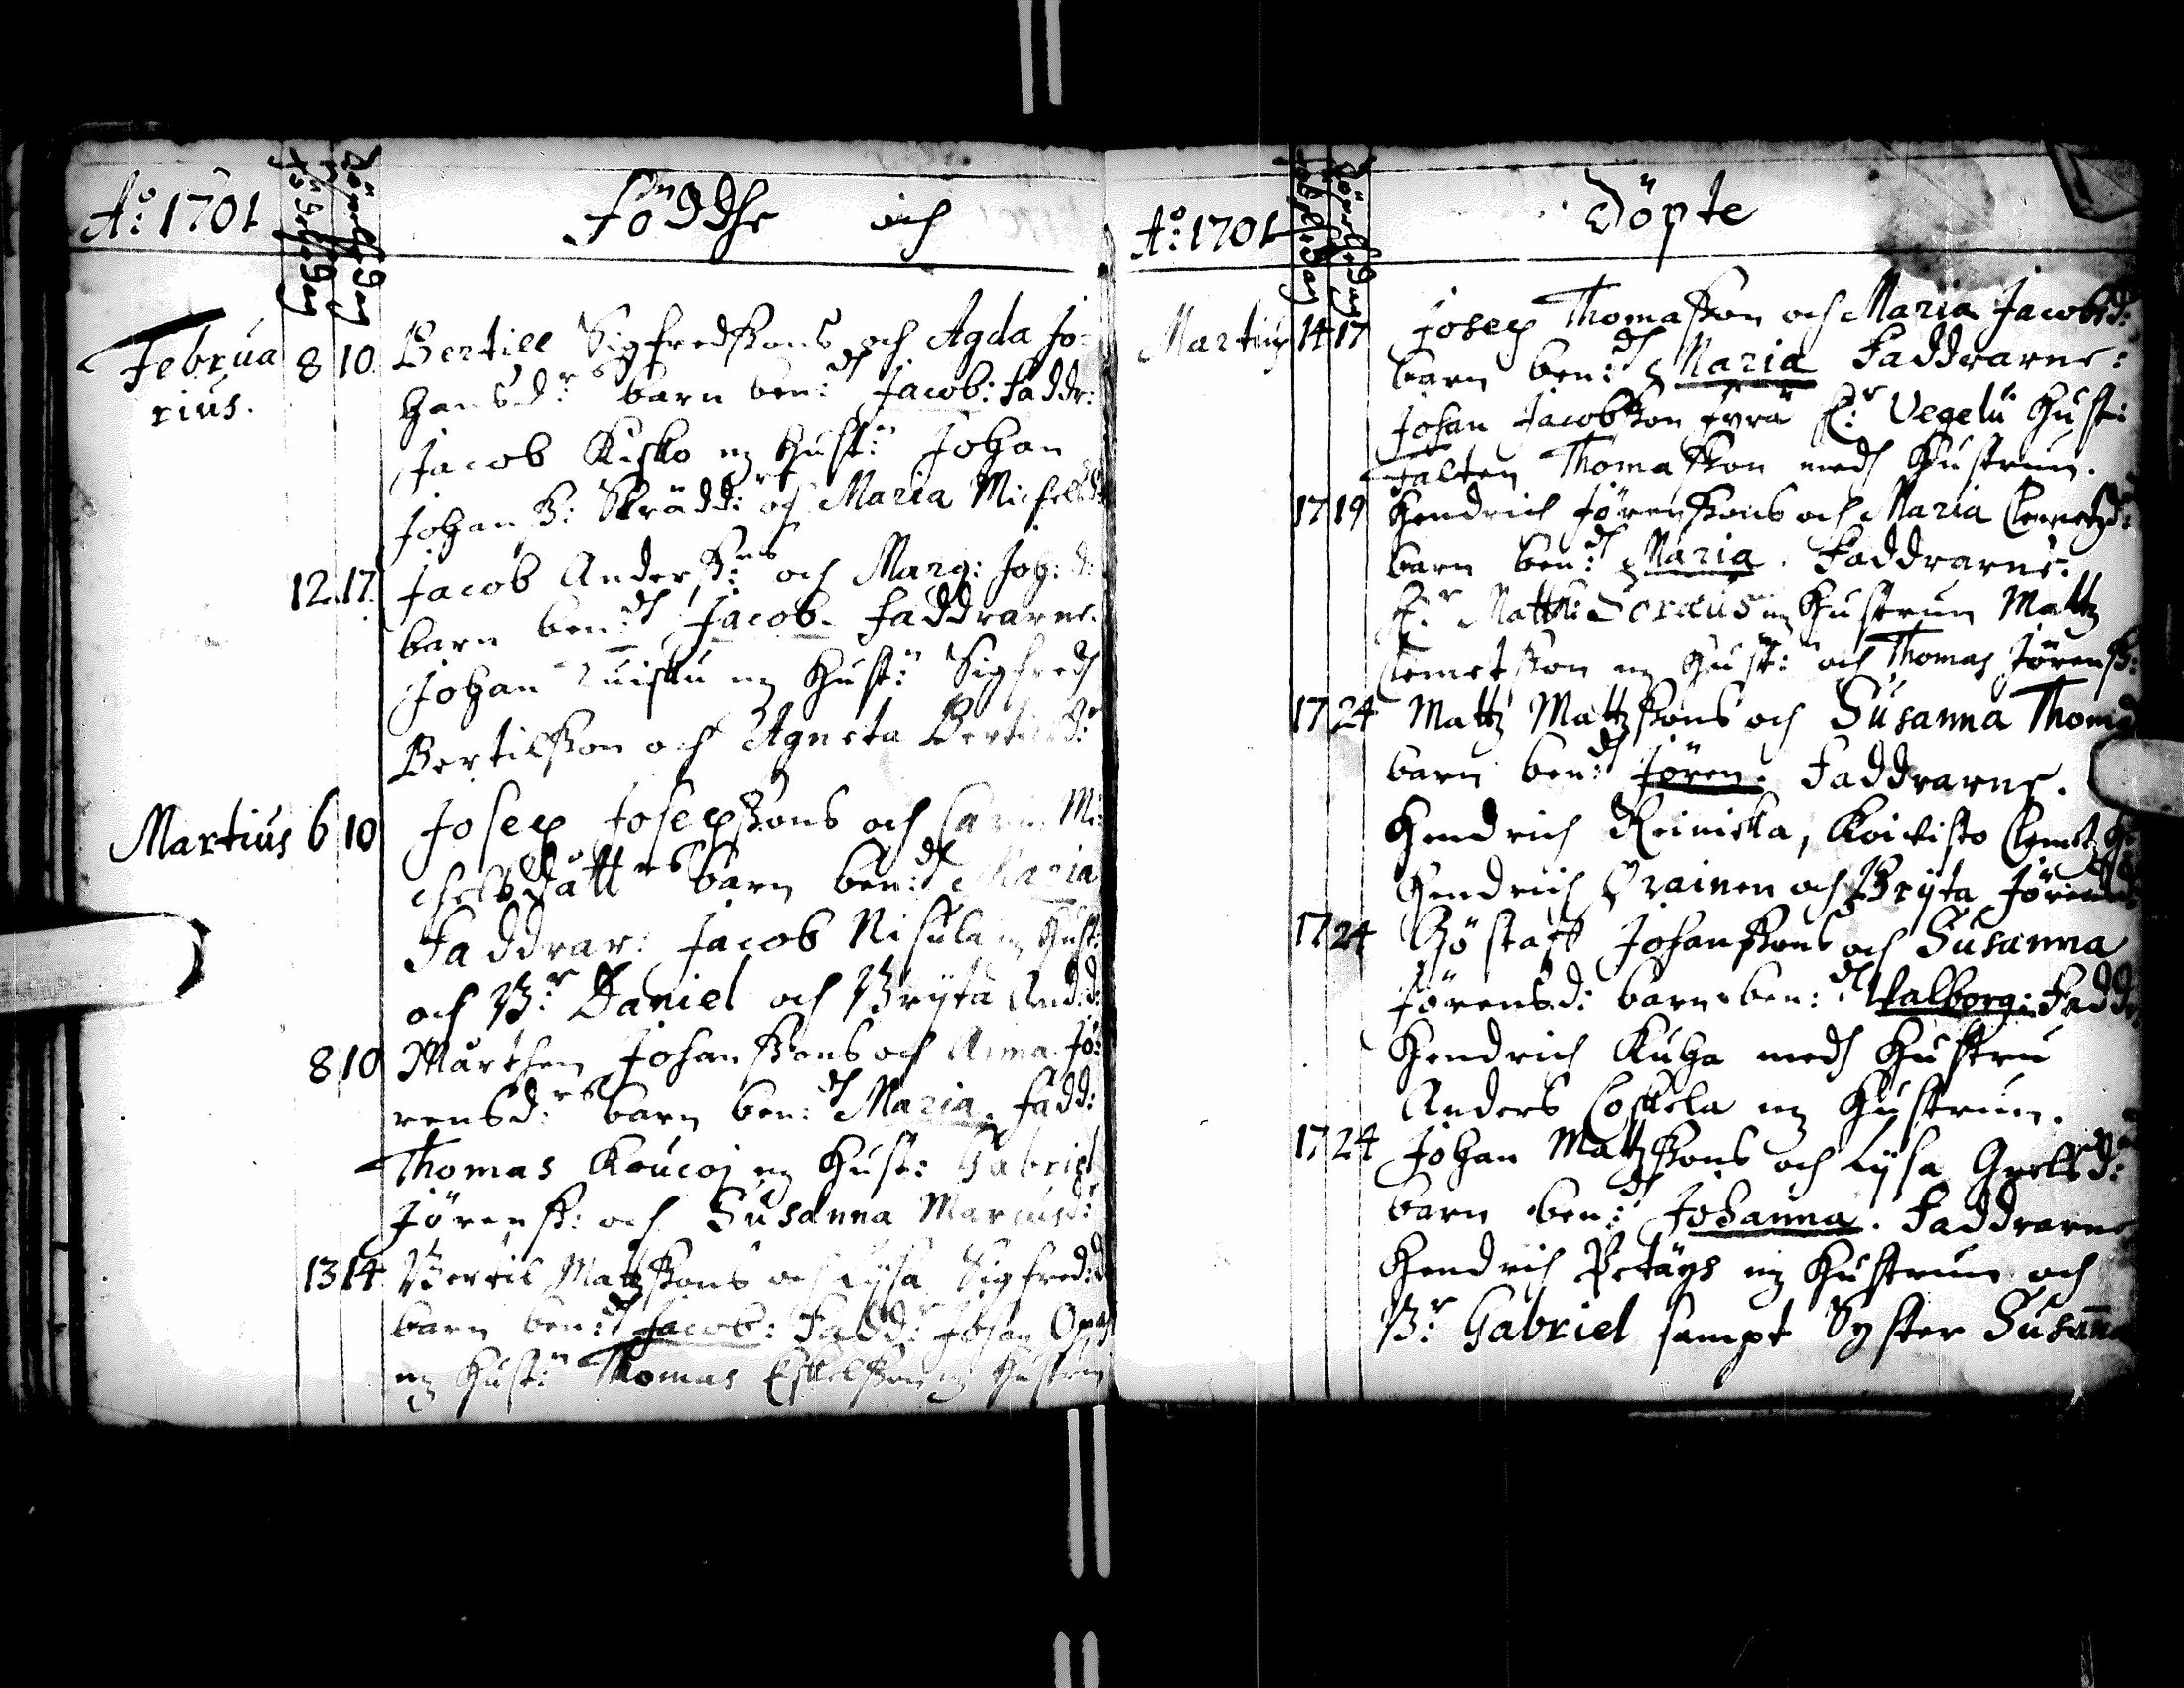 A:o 1701
Födelse dag
Döpelse dag
Föddhe och
Februa 8 10 Bertill Sigfredssons och Agda Jo-
rius. hansd:rs barn ben:dh Jacob: Faddr:
Jacob Kisko m Hust:u Johan
Johanss: Skrädd:r och Maria Michelsd:r
12. 17. Jacob Anderss:ns och Marg: Joh: d:
barn ben:dh Jacob. Faddrarne.
Johan Luisku m Hust:u Sigfredh
Bertilsson och Agneta Bertilsd:r
Martius 6 10 Josep Josepssons och Carin Mi-
chelsdått:rs barn ben:dh Maria
Faddrar: Jacob Nisula m Hust:
och B:r Daniel och Bryta And:d:
8 10 Mårthen Johanssons och Anna Jö-
rensd:rs barn ben:dh Maria. Fadd:
Thomas Koucoi m Hust: Gabriel
Jörenss: och Susanna Marcusd:r
13 14 Bertil Mattzsons och Lysa Sigfred:d
barn ben:dh Jacob: Fadd:r Johan
m Hust:u Thomas Eskelsson m Hustrun
A:o 1701
Födelse dag
Döpelse dag
Döpte
Martius 14 17 Josep Thomasson och Maria Jacobsd:
barn ben:dh Maria Faddrarne:
Johan Jacobsson Fyra H:r Vegelii Hust:
Falten Thomasson medh Hustrun.
17 19 Hendrich Jörenssons och Maria Clemetzd:
barn ben:dh Maria. Faddrarne.
H:r Matth: m Hustrun Mattz
Clemetsson m Hust:u och Thomas Jörenss:
17 24 Mattz Mattzsons och Susanna Thomæd
barn ben:dh Jören. Faddrarne.
Hendrich Reinicka, Koivisto Clemet
Hendrich och Bryta Jörensd
17 24 Göstaff Johanssons och Susanna
Jörensd: barn ben:dh Valborg: Fadd:
Hendrich Kuha medh Hustru
Anders Coskela m Hustrun.
17 24 Johan Mattzsons och Lysa Grelsd:
barn ben:dh Johanna. Faddrarne
Hendrich Petäys m Hustrun och
B:r Gabriel sampt Syster Susanna